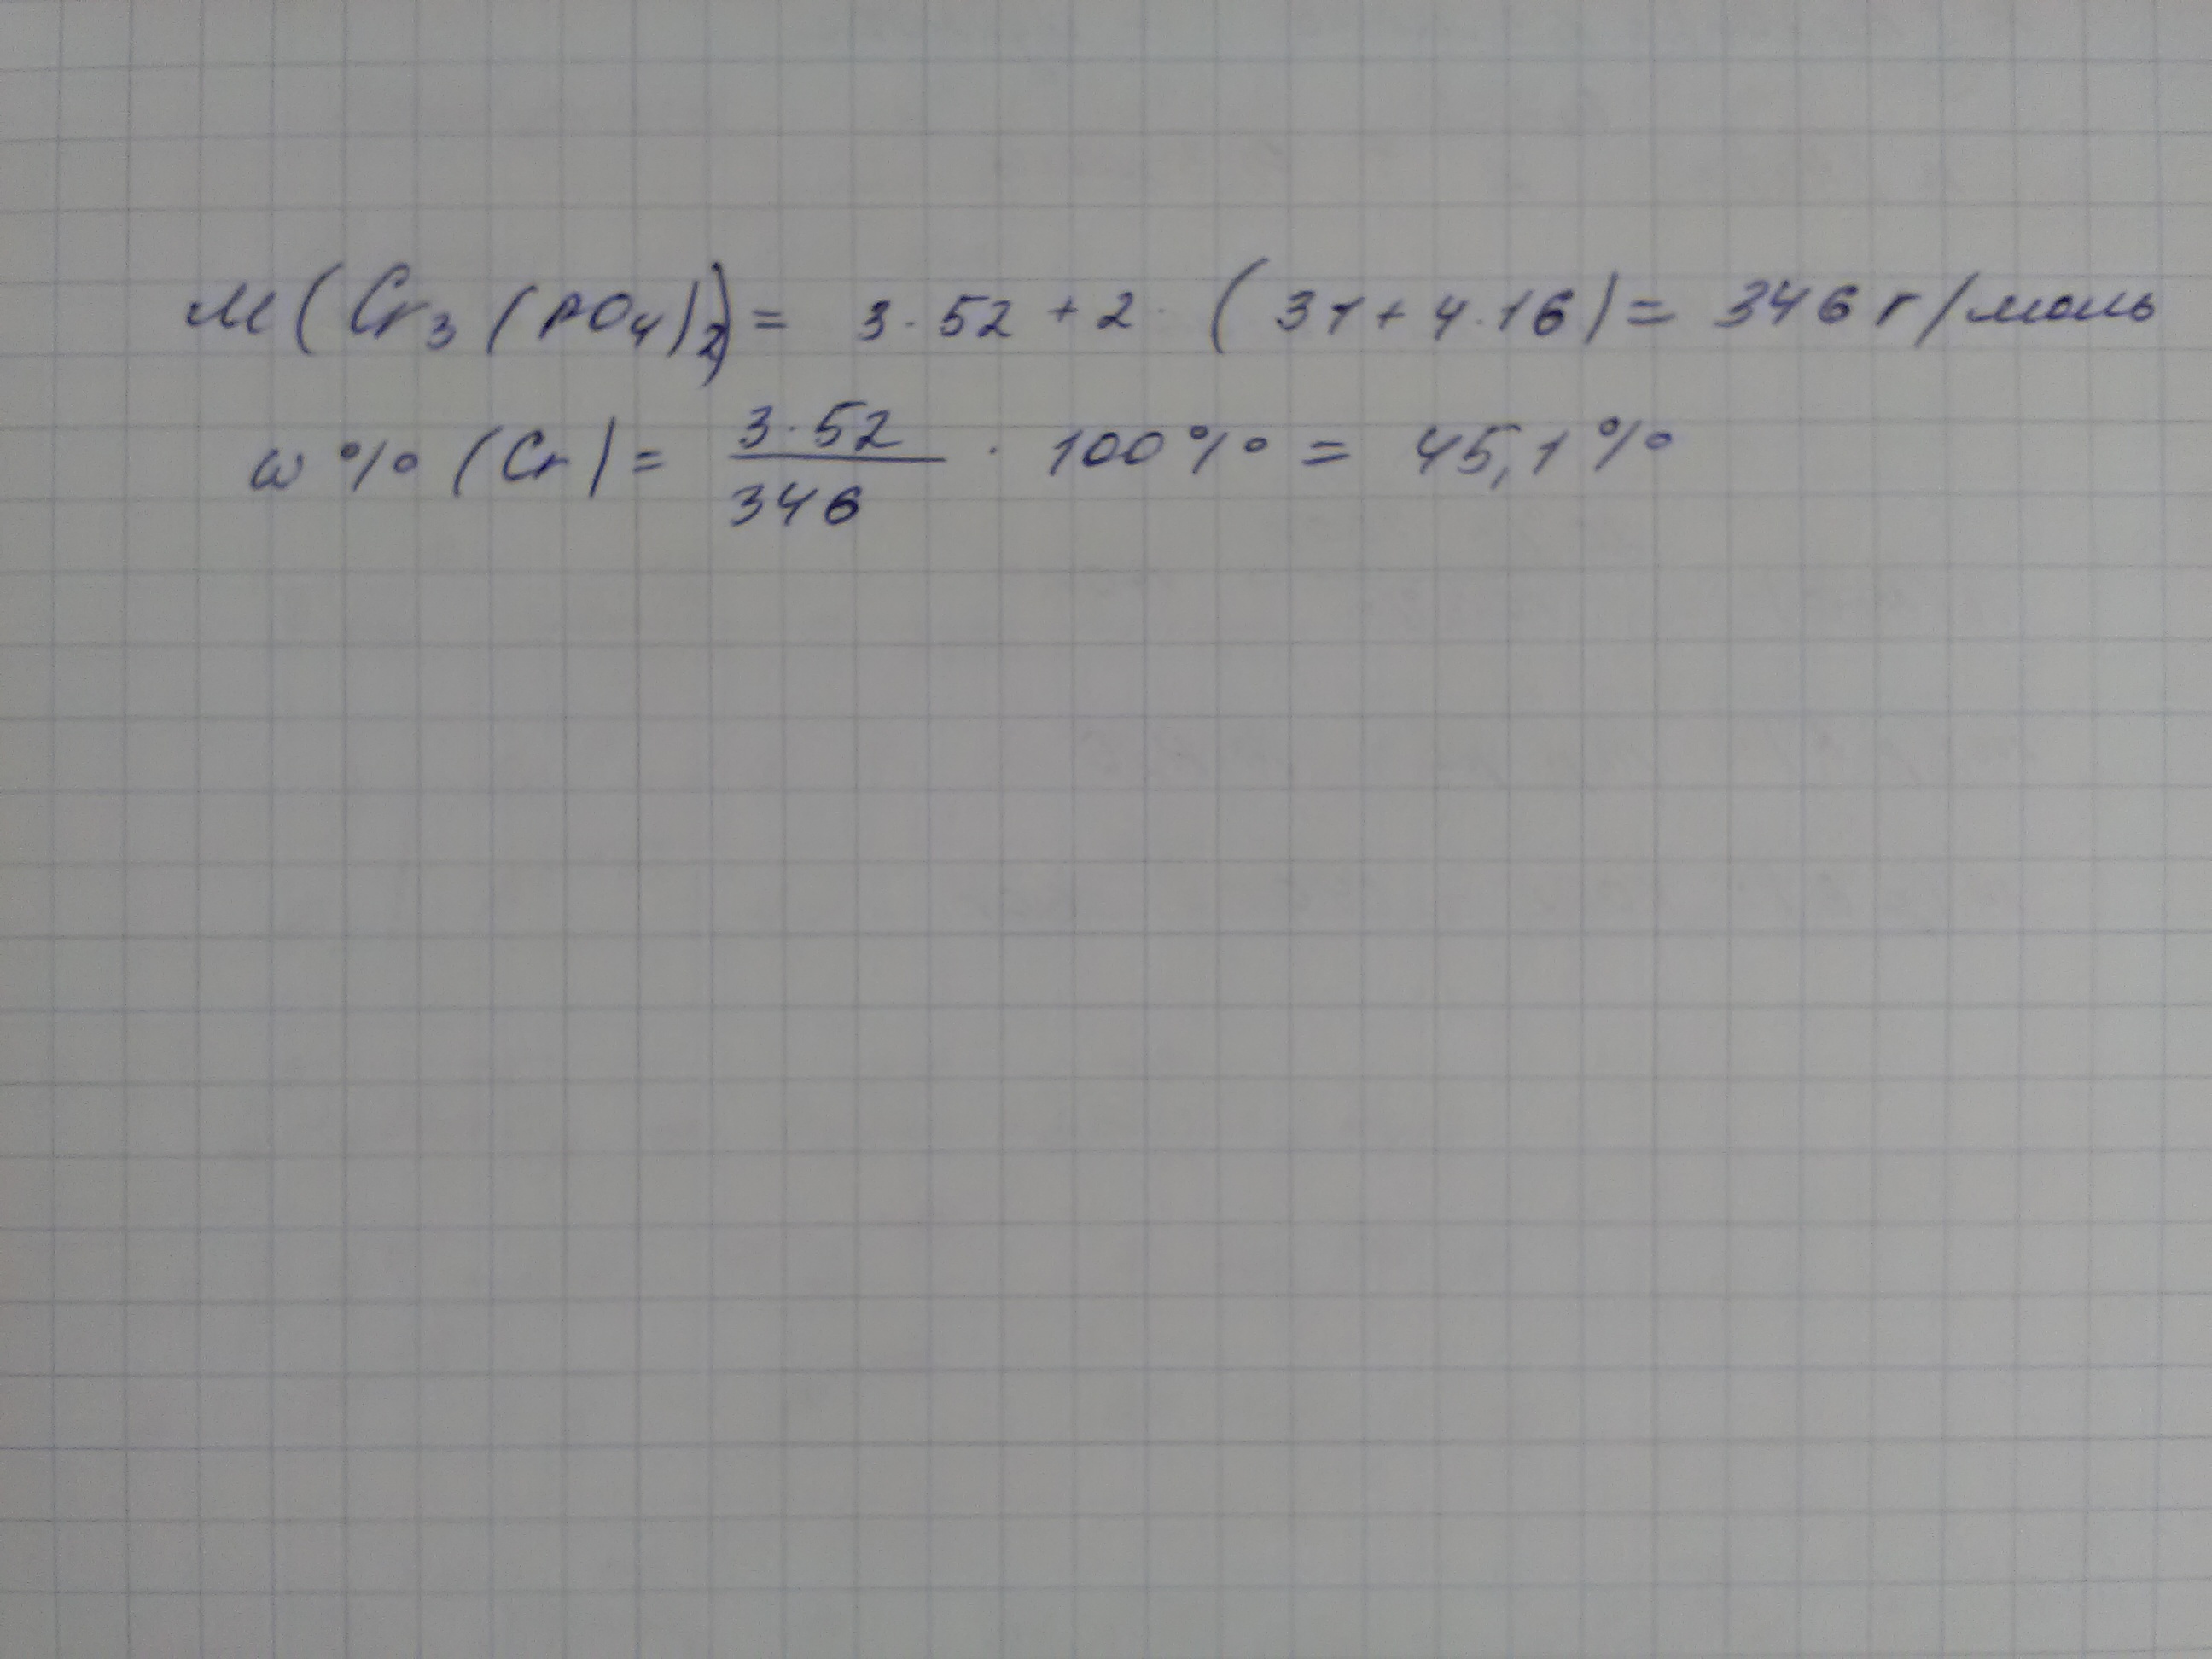 M(Cr₃(PO₄)₂) = 3·52 + 2·(31 + 4·16) = 346 г/моль
ω% (Cr) = 3·52/346 · 100% = 45,1%